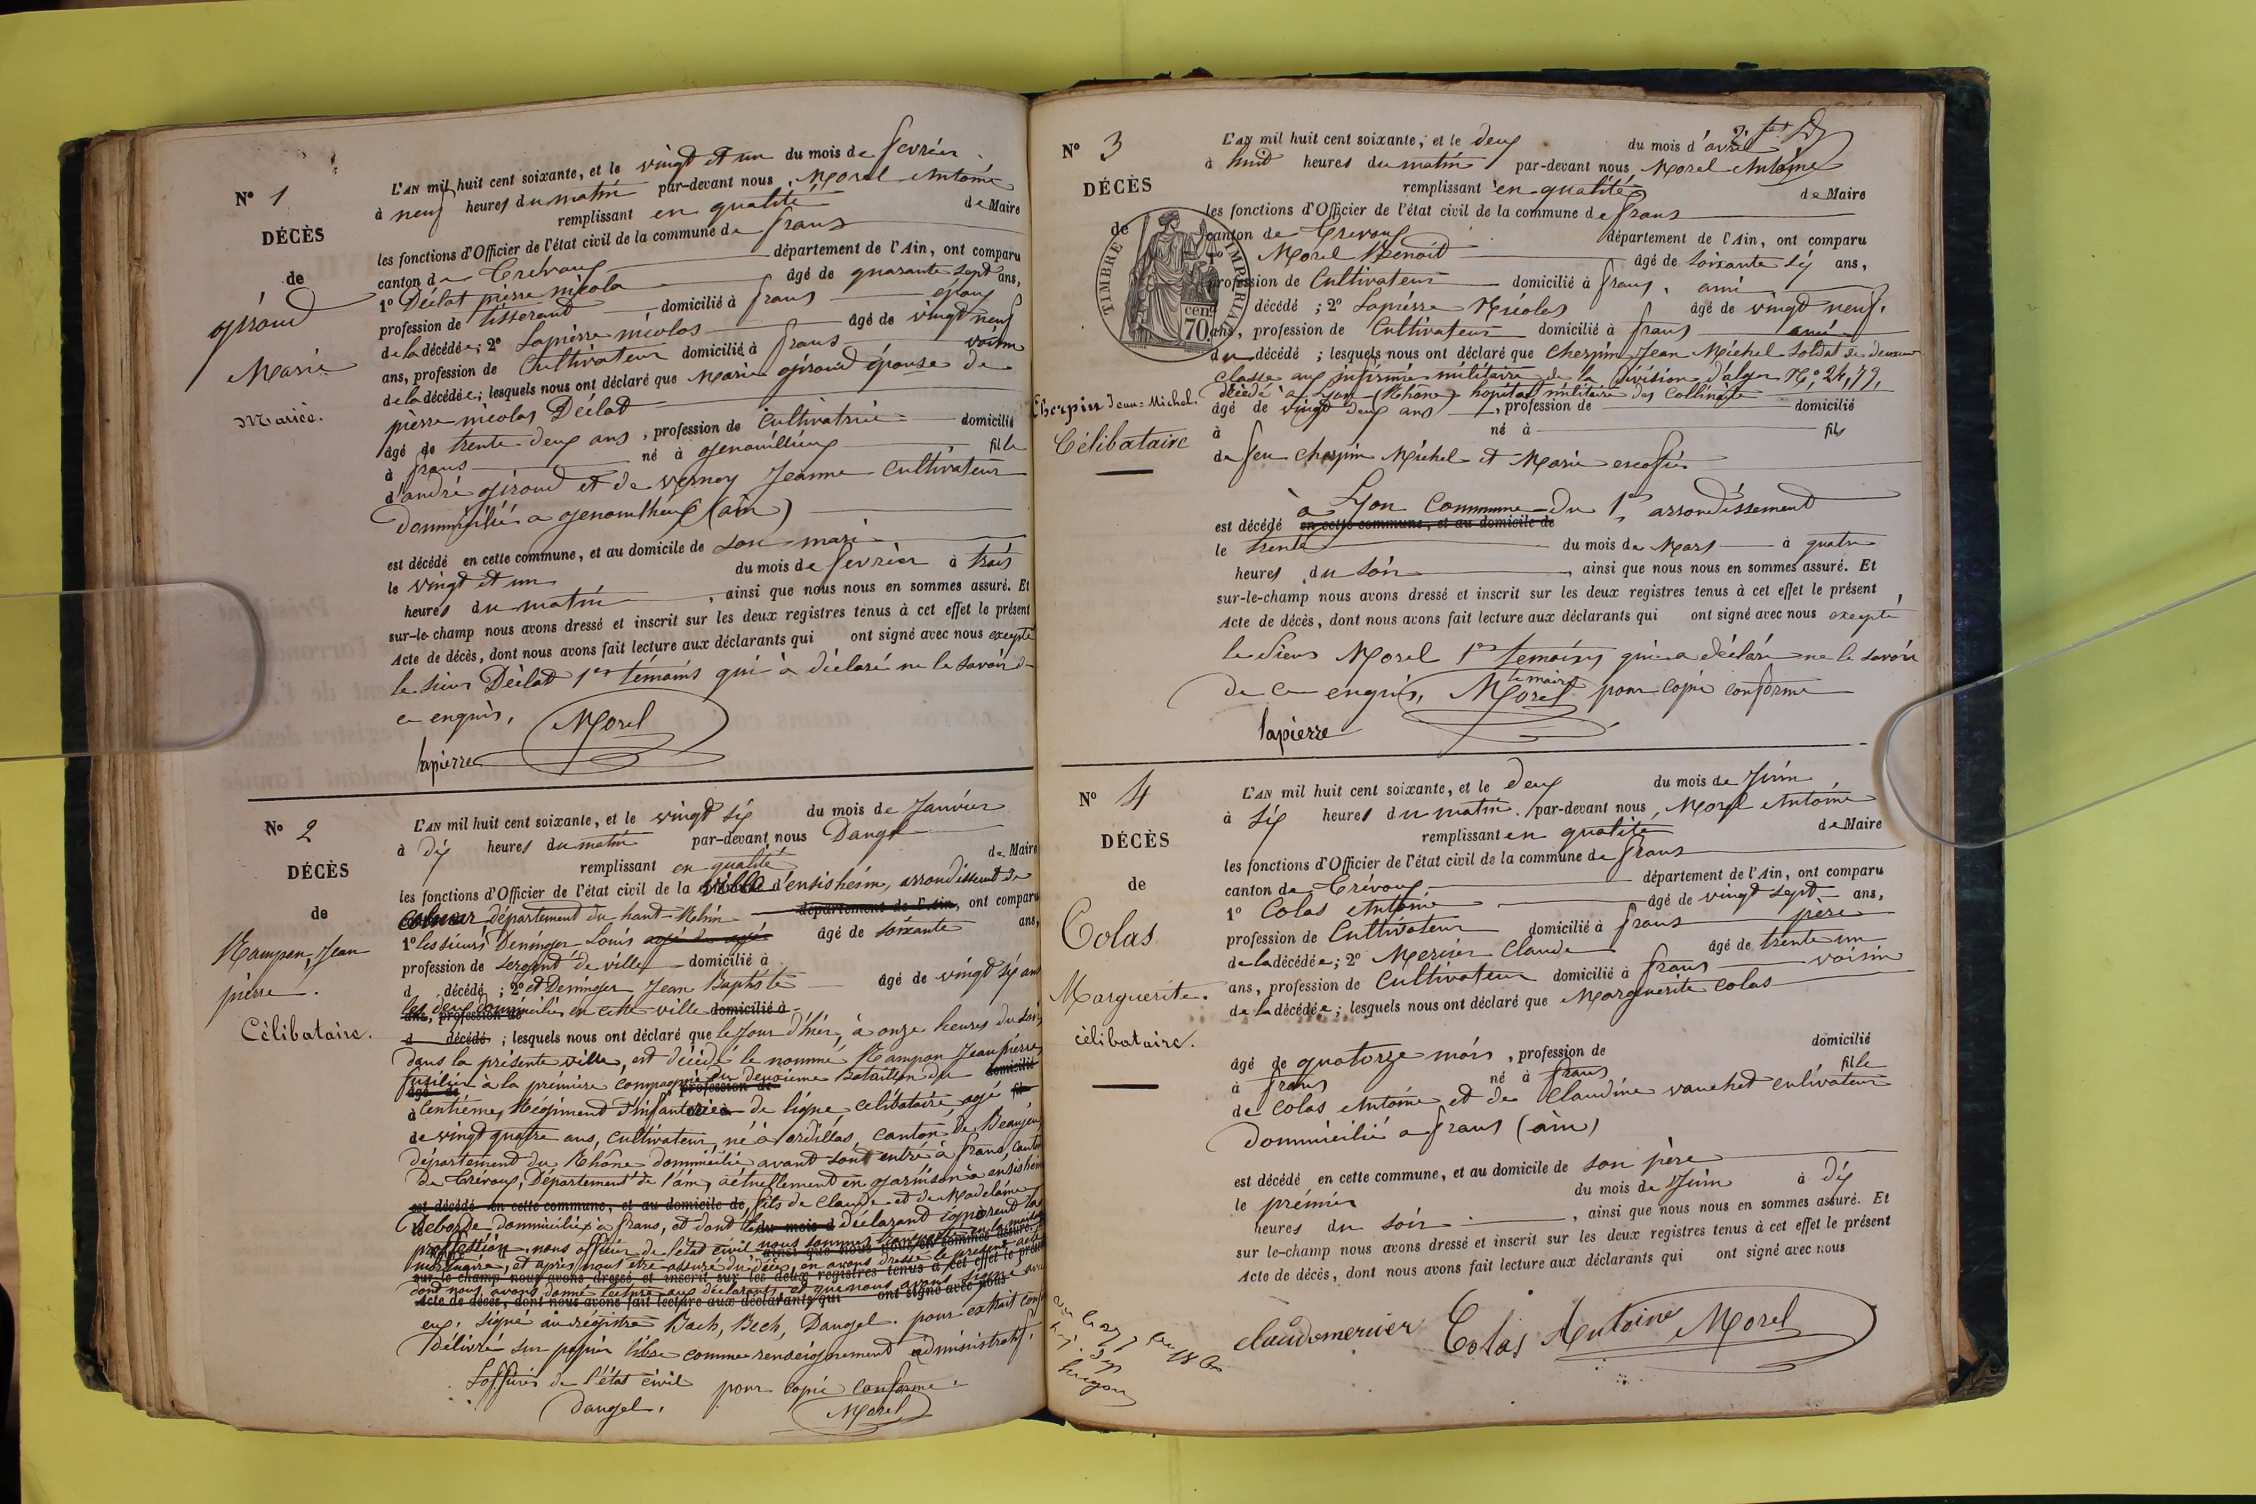 N° 1
DÉCÈS
de
giraud
Marie
Mariée.
L'AN mil huit cent soixante, et le vingt et un du mois de fevrier
à neuf heures du matin par-devant nous Morel Antoine
remplissant en qualité de Maire
les fonctions d'Officier de l'état civil de la commune de frans
canton de Trévoux département de l'Ain, ont comparu
1° Déclat pierre nicolas âgé de quarante sept ans,
profession de tisserand domicilié à frans epoux
de la décédée; 2° Lapierre nicolas âgé de vingt neuf
ans, profession de Cultivateur domicilié à frans voisin
de la décédée; lesquels nous ont déclaré que Marie giraud épouse de
pierre nicolas Déclat
âgé de trente-deux ans, profession de Cultivatrice domicilié
à frans né à genouilleux fille
d'andré giraud et de vernoy Jeanne Cultivateur
Dommiciliés a genouilleux (ain)
est décédé en cette commune, et au domicile de son mari
le vingt et un du mois de fevrier à trois
heures du matin, ainsi que nous nous en sommes assuré. Et
sur-le-champ nous avons dressé et inscrit sur les deux registres tenus à cet effet le présent
Acte de décès, dont nous avons fait lecture aux déclarants qui ont signé avec nous excepté
le sieur Déclat 1er témoins qui à déclaré ne le savoir de
ce enquis,
Morel
lapierre
N° 2
DÉCÈS
de
Rampon, Jean
pierre.
Célibataire.
L'AN mil huit cent soixante, et le vingt six du mois de Janvier
à dix heures du matin par-devant nous Dangel
remplissant en qualité de Maire
les fonctions d'Officier de l'état civil de la ville d'ensisheim, arrondissement de
Colmar département du haut-Rhin département de l'Ain, ont comparu
1° les sieurs Deninger Louis âgé de soixante ans,
profession de sergent de ville domicilié à
d décédé; 2° et Deninger Jean Baptiste âgé de vingt six ans
les deux domiciliés en cette ville domicilié à
d décédé; lesquels nous ont déclaré que le jour d'hier, à onze heures du soir,
dans la présente ville, est décédé le nommé Rampon Jean pierre,
fusilier à la première compagnie du deuxième Bataillon du domicilié
à Centième Régiment d'infanterie de ligne celibataire, agé
de vingt quatre ans, Cultivateur, né à ardillas, canton de Beaujeu,
département du Rhône dommicilié avant sont entré à frans, canton
de Trévoux, Département de l'ain, actuellement en garnison à ensisheim
est décédé en cette commune, et au domicile de, fils de Claude et de Madelaine
Deborde dommiciliés a frans, et dont les déclarant ignorent la
proffession. nous officier de l'état civil nous sommes transporté en la maison
mortuaire, et après nous être assuré du décès, en avons dressé le present acte
sur-le-champ nous avons dressé et inscrit sur les deux registres tenus à cet effet le présent
dont nous avons donné lecture aux déclarants, et que nous avons signé avec
Acte de décès, dont nous avons fait lecture aux déclarants qui ont signé avec nous
eux. signé au régistre Bach, Bech, Dangel. pour extrait conf
Délivré sur papier libre comme renseignement administratif.
L'officier de l'état civil pour copie conforme.
Dangel. Morel
N° 3
DÉCÈS
de
TIMBRE IMPÉRIAL
70 cent
Cherpin Jean-Michel.
Célibataire
L'AN mil huit cent soixante, et le deux du mois d'avril
à huit heures du matin par-devant nous Morel Antoine
remplissant en qualité de Maire
les fonctions d'Officier de l'état civil de la commune de frans
canton de Trevoux département de l'Ain, ont comparu
1° Morel Benoit âgé de soixante six ans,
profession de Cultivateur domicilié à frans, ami
décédé; 2° Lapierre Nicolas âgé de vingt neuf.
ans, profession de Cultivateur domicilié à frans ami
du décédé; lesquels nous ont déclaré que cherpin Jean Michel soldat de deuxieme
classe aux infirmier militaire de la division d'alger N°. 24,79,
décédé à Lyon (Rhône) hopital militaire des Collinette
âgé de vingt deux ans, profession de domicilié
à né à fils
de feu cherpin Michel et Marie escofier
à Lyon Commune du 1er arrondissement
est décédé en cette commune, et au domicile de
le trente du mois de Mars à quatre
heures du soir, ainsi que nous nous en sommes assuré. Et
sur-le-champ nous avons dressé et inscrit sur les deux registres tenus à cet effet le présent
Acte de décès, dont nous avons fait lecture aux déclarants qui ont signé avec nous excepté
le sieur Morel 1er temoins qui a déclaré ne le savoir
de ce enquis, le maire Morel pour copie conforme
lapierre
N° 4
DÉCÈS
de
Colas
Marguerite.
célibataire.
L'AN mil huit cent soixante, et le deux du mois de Juin
à six heures du matin. par-devant nous Morel Antoine
remplissant en qualité de Maire
les fonctions d'Officier de l'état civil de la commune de frans
canton de Trévoux département de l'Ain, ont comparu
1° Colas Antoine âgé de vingt sept ans,
profession de Cultivateur domicilié à frans père
de la décédée; 2° Mercier Claude âgé de trente un
ans, profession de Cultivateur domicilié à frans voisin
de la décédée; lesquels nous ont déclaré que Marguerite Colas
âgé de quatorze mois, profession de domicilié
à frans né à frans fille
de Colas Antoine et de Claudine vauchet cultivateur
Dommicilié a frans (ain)
est décédé en cette commune, et au domicile de son père
le prémier du mois de Juin à dix
heures du soir, ainsi que nous nous en sommes assuré. Et
sur le-champ nous avons dressé et inscrit sur les deux registres tenus à cet effet le présent
Acte de décès, dont nous avons fait lecture aux déclarants qui ont signé avec nous
claude mercier Colas Antoine Morel